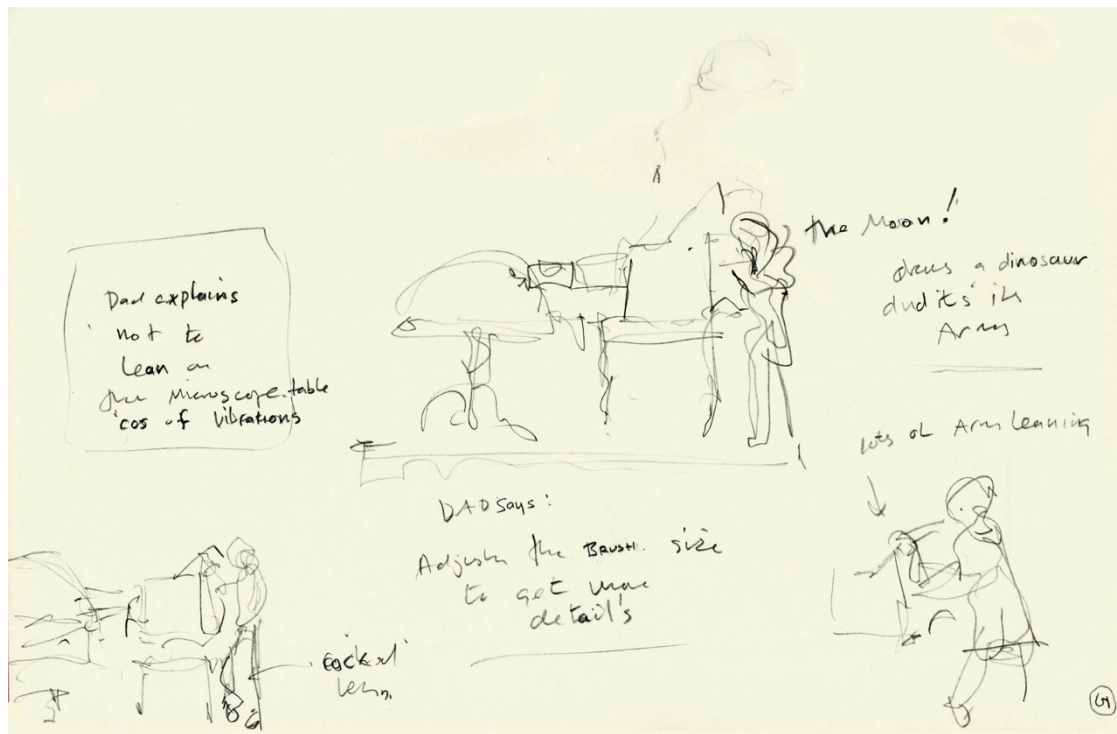 Dad explains
not to
lean on
the Microscope table
'cos of Vibrations
the Moon!
draws a dinosaur
and it's in
Army
lots of Arm leaning
DAD says:
Adjust the BRUSH size
to get more
detail's